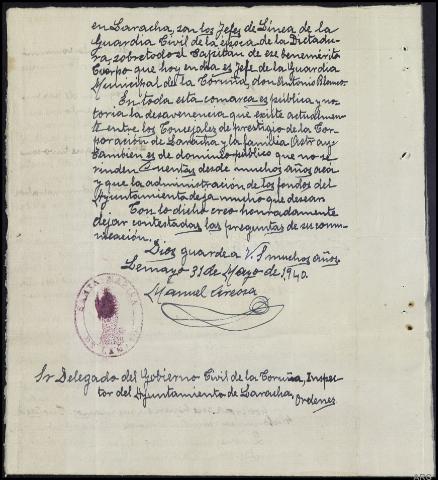 en Laracha, son los Jefes de Línea de la
Guardia Civil de la época de la Dictadu-
ra, sobre todo el Capitán de ese benemérito
Cuerpo que hoy en día es Jefe de la Guardia
Municipal de la Coruña, don Antonio Blanco.
En toda esta comarca es pública y no-
toria la desavenencia que existe actualmen-
te entre los Concejales de prestigio de la Cor-
poración de Laracha y la familia Astray
también es de dominio público que no se
rinden Cuentas desde muchos años acá
y que la administración de los fondos del
Ayuntamiento deja mucho que desear.
Con lo dicho creo honradamente
dejar contestadas las preguntas de su comu-
nicación.
Dios guarde a V. S muchos años.
Lemayo 31 de Mayo de 1940.
Manuel
SANTA MARINA
Sr Delegado del Gobierno Civil de la Coruña, Inspec-
tor del Ayuntamiento de Laracha, Ordenes
ARG